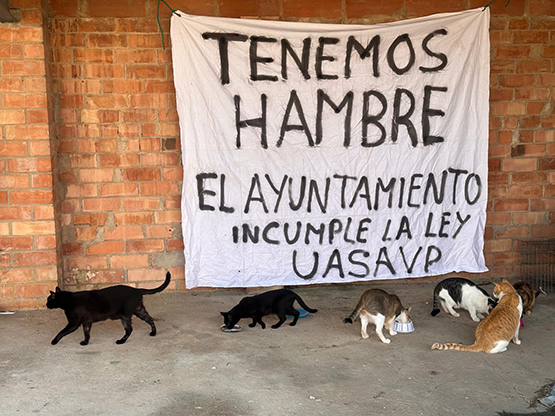 TENEMOS
HAMBRE
EL AYUNTAMIENTO
INCUMPLE LA LEY
UASAVP